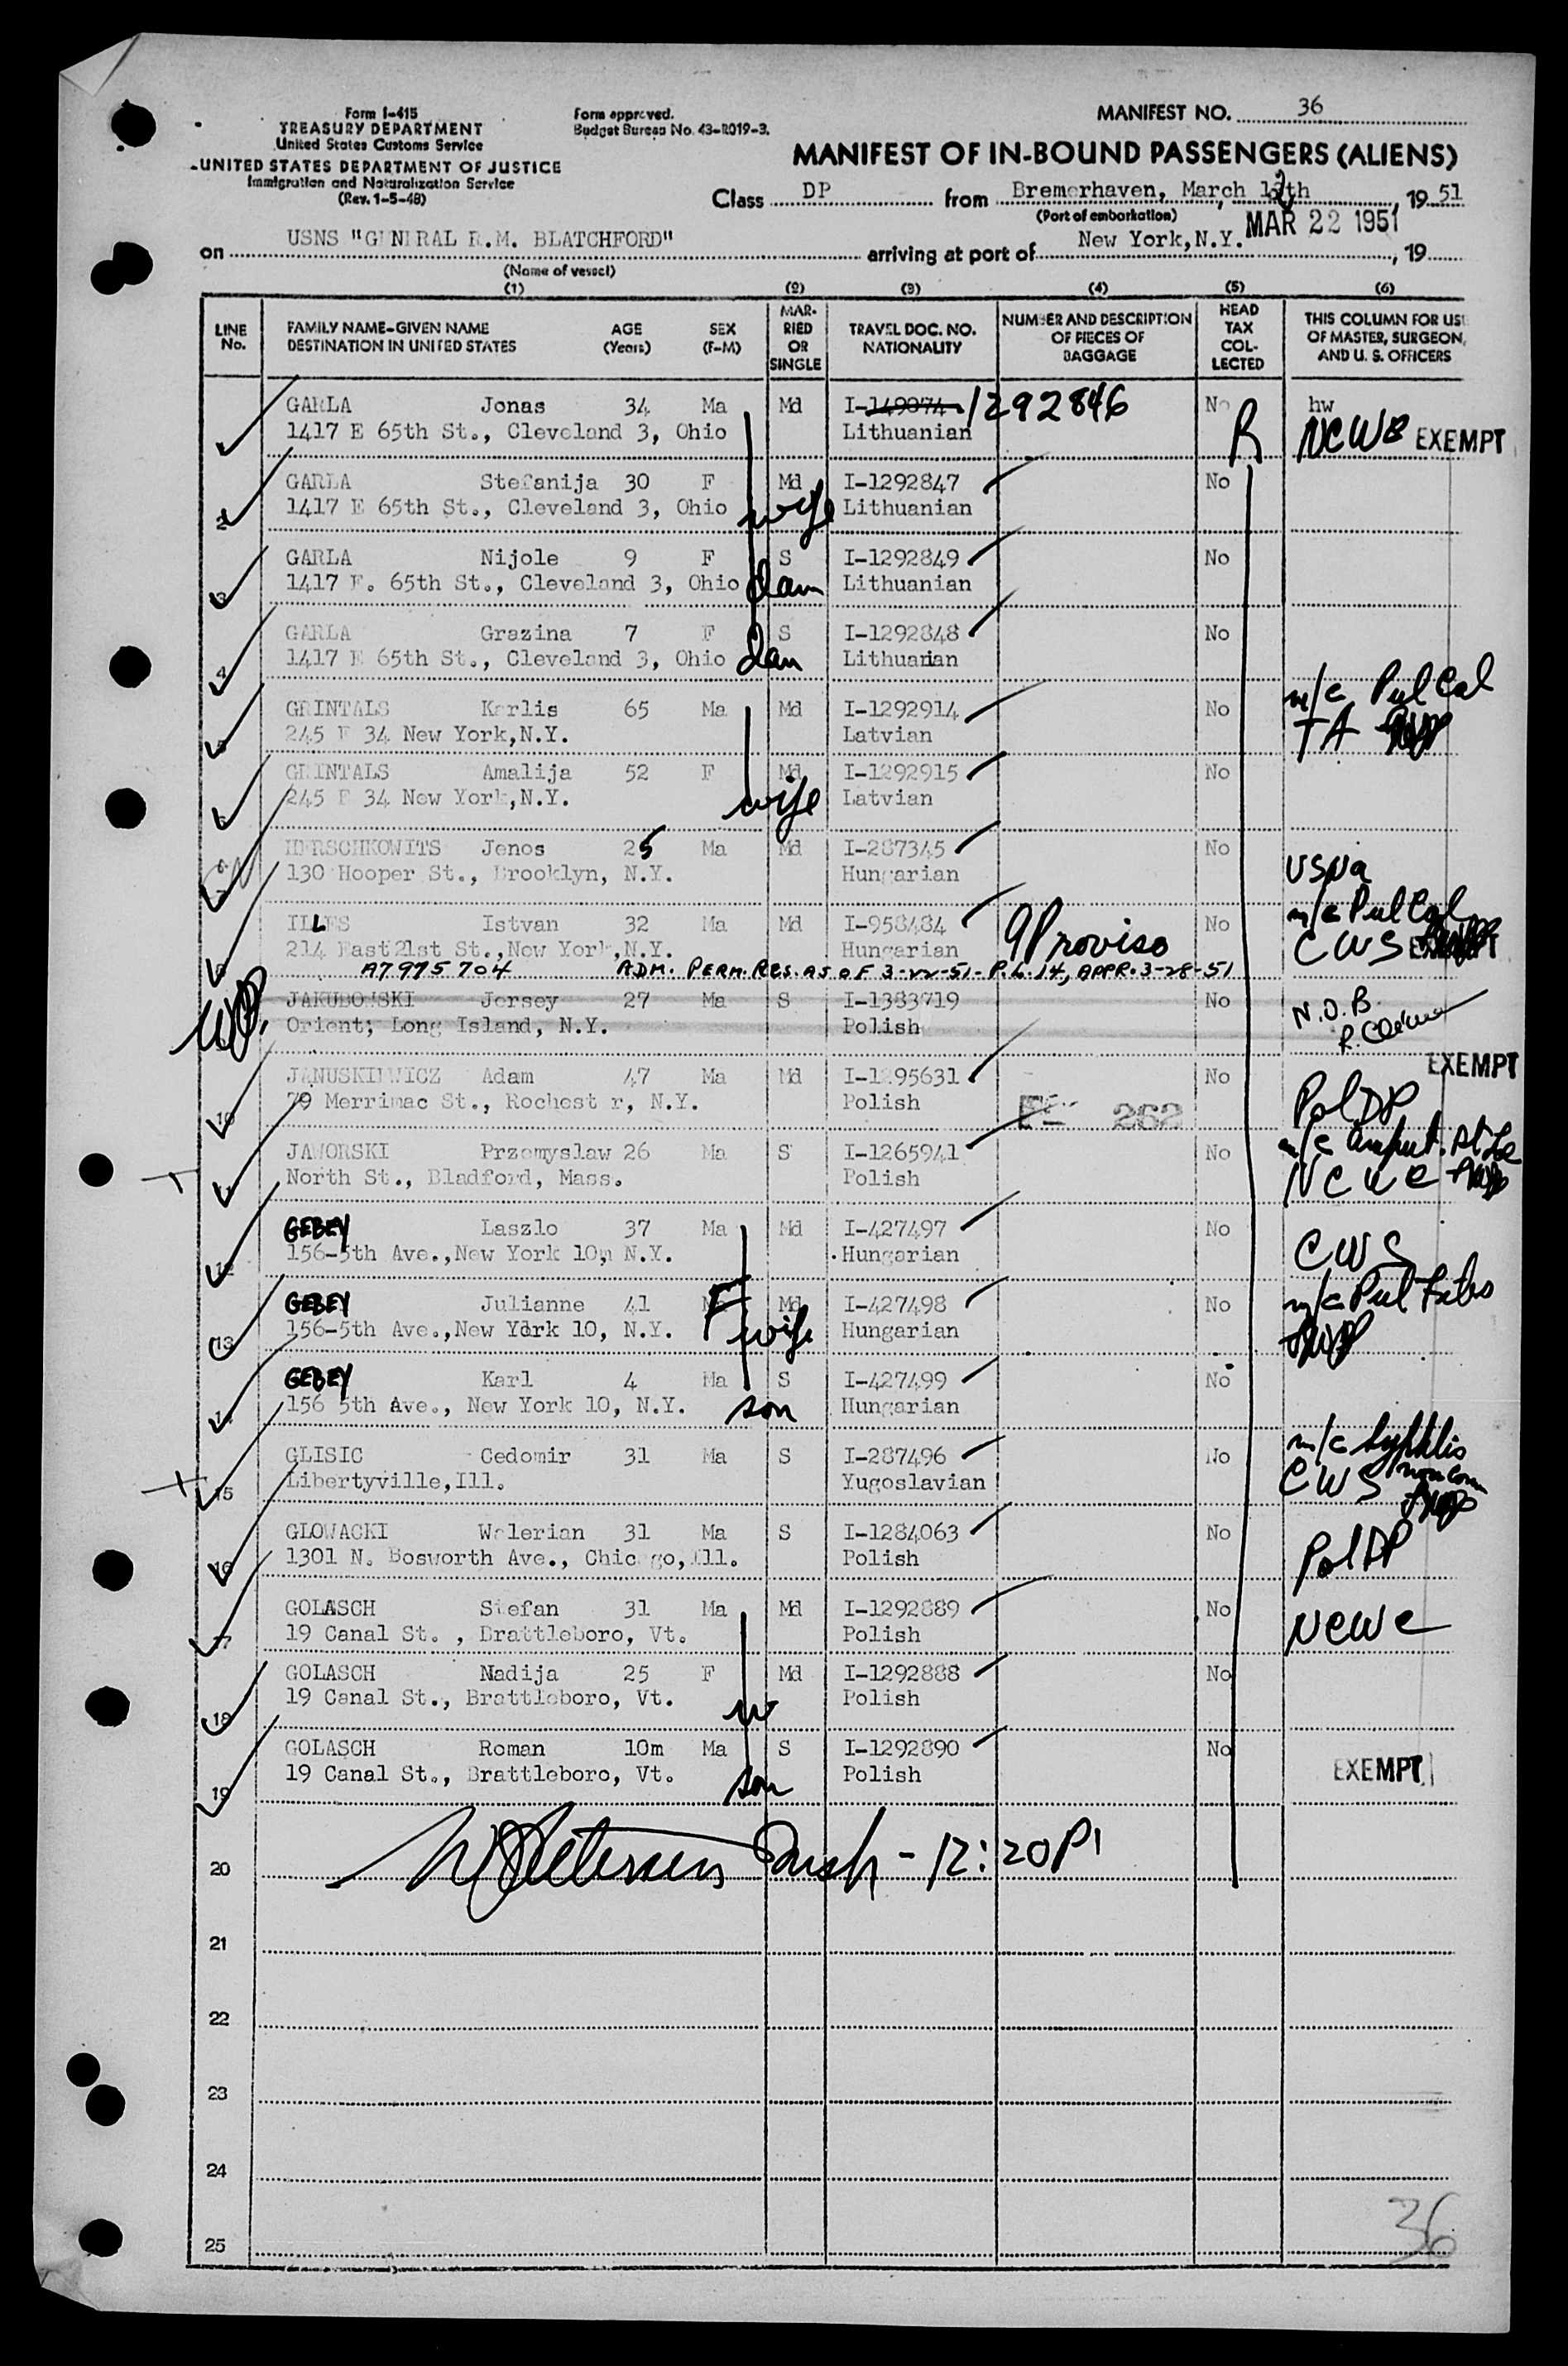 Form I-415
TREASURY DEPARTMENT
United States Customs Service
UNITED STATES DEPARTMENT OF JUSTICE
Immigration and Naturalization Service
(Rev. 1-5-48)
Form approved.
Budget Bureau No. 43-R019-3.
MANIFEST NO. 36
MANIFEST OF IN-BOUND PASSENGERS (ALIENS)
Class DP from Bremerhaven, March 12th, 1951
(Port of embarkation)
on USNS "GENERAL R.M. BLATCHFORD" arriving at port of New York,N.Y. MAR 22 1951, 19
(Name of vessel)
(1) (2) (3) (4) (5) (6)
LINE No. FAMILY NAME-GIVEN NAME DESTINATION IN UNITED STATES AGE (Years) SEX (F-M) MARRIED OR SINGLE TRAVEL DOC. NO. NATIONALITY NUMBER AND DESCRIPTION OF PIECES OF BAGGAGE HEAD TAX COLLECTED THIS COLUMN FOR USE OF MASTER, SURGEON, AND U. S. OFFICERS
GARLA Jonas 34 Ma Md I-149074 1292846 No hw
1417 E 65th St., Cleveland 3, Ohio Lithuanian R NCWC EXEMPT
GARLA Stefanija 30 F Md I-1292847 No
2 1417 E 65th St., Cleveland 3, Ohio wife Lithuanian
GARLA Nijole 9 F S I-1292849 No
3 1417 E. 65th St., Cleveland 3, Ohio dau Lithuanian
GARLA Grazina 7 F S I-1292848 No
4 1417 E 65th St., Cleveland 3, Ohio dau Lithuanian
GRINTALS Karlis 65 Ma Md I-1292914 No m/c Pul Cal
5 245 E 34 New York,N.Y. Latvian TA
GRINTALS Amalija 52 F Md I-1292915 No
6 245 E 34 New York,N.Y. wife Latvian
HERSCHKOWITS Jenos 25 Ma Md I-287345 No
130 Hooper St., Brooklyn, N.Y. Hungarian USNA
ILLES Istvan 32 Ma Md I-958484 No m/c Pul Cal
214 East 21st St.,New York,N.Y. Hungarian 9Proviso CWS EXEMPT
A7975704 ADM. PERM. RES. AS OF 3-22-51- P.L. 14, APPR. 3-28-51
JAKUBOWSKI Jersey 27 Ma S I-1383719 No N.O.B.
Orient; Long Island, N.Y. Polish
EXEMPT
JANUSKIEWICZ Adam 47 Ma Md I-1295631 No
10 79 Merrimac St., Rochester, N.Y. Polish 262 Pol DP
JAWORSKI Przemyslaw 26 Ma S I-1265941 No m/c amput.
North St., Bladford, Mass. Polish NCWC
GEBEY Laszlo 37 Ma Md I-427497 No
12 156-5th Ave.,New York 10, N.Y. Hungarian CWS
GEBEY Julianne 41 F Md I-427498 No m/c Pul Fibs
13 156-5th Ave.,New York 10, N.Y. wife Hungarian
GEBEY Karl 4 Ma S I-427499 No
156 5th Ave., New York 10, N.Y. son Hungarian
GLISIC Cedomir 31 Ma S I-287496 No m/c Syphilis
15 Libertyville,Ill. Yugoslavian CWS noncom
GLOWACKI Walerian 31 Ma S I-1284063 No
16 1301 N. Bosworth Ave., Chicago,Ill. Polish Pol DP
GOLASCH Stefan 31 Ma Md I-1292889 No
17 19 Canal St. , Brattleboro, Vt. Polish NCWC
GOLASCH Nadija 25 F Md I-1292888 No
18 19 Canal St., Brattleboro, Vt. w Polish
GOLASCH Roman 10m Ma S I-1292890 No
19 19 Canal St., Brattleboro, Vt. son Polish EXEMPT
20 12:20P
21
22
23
24
25
36